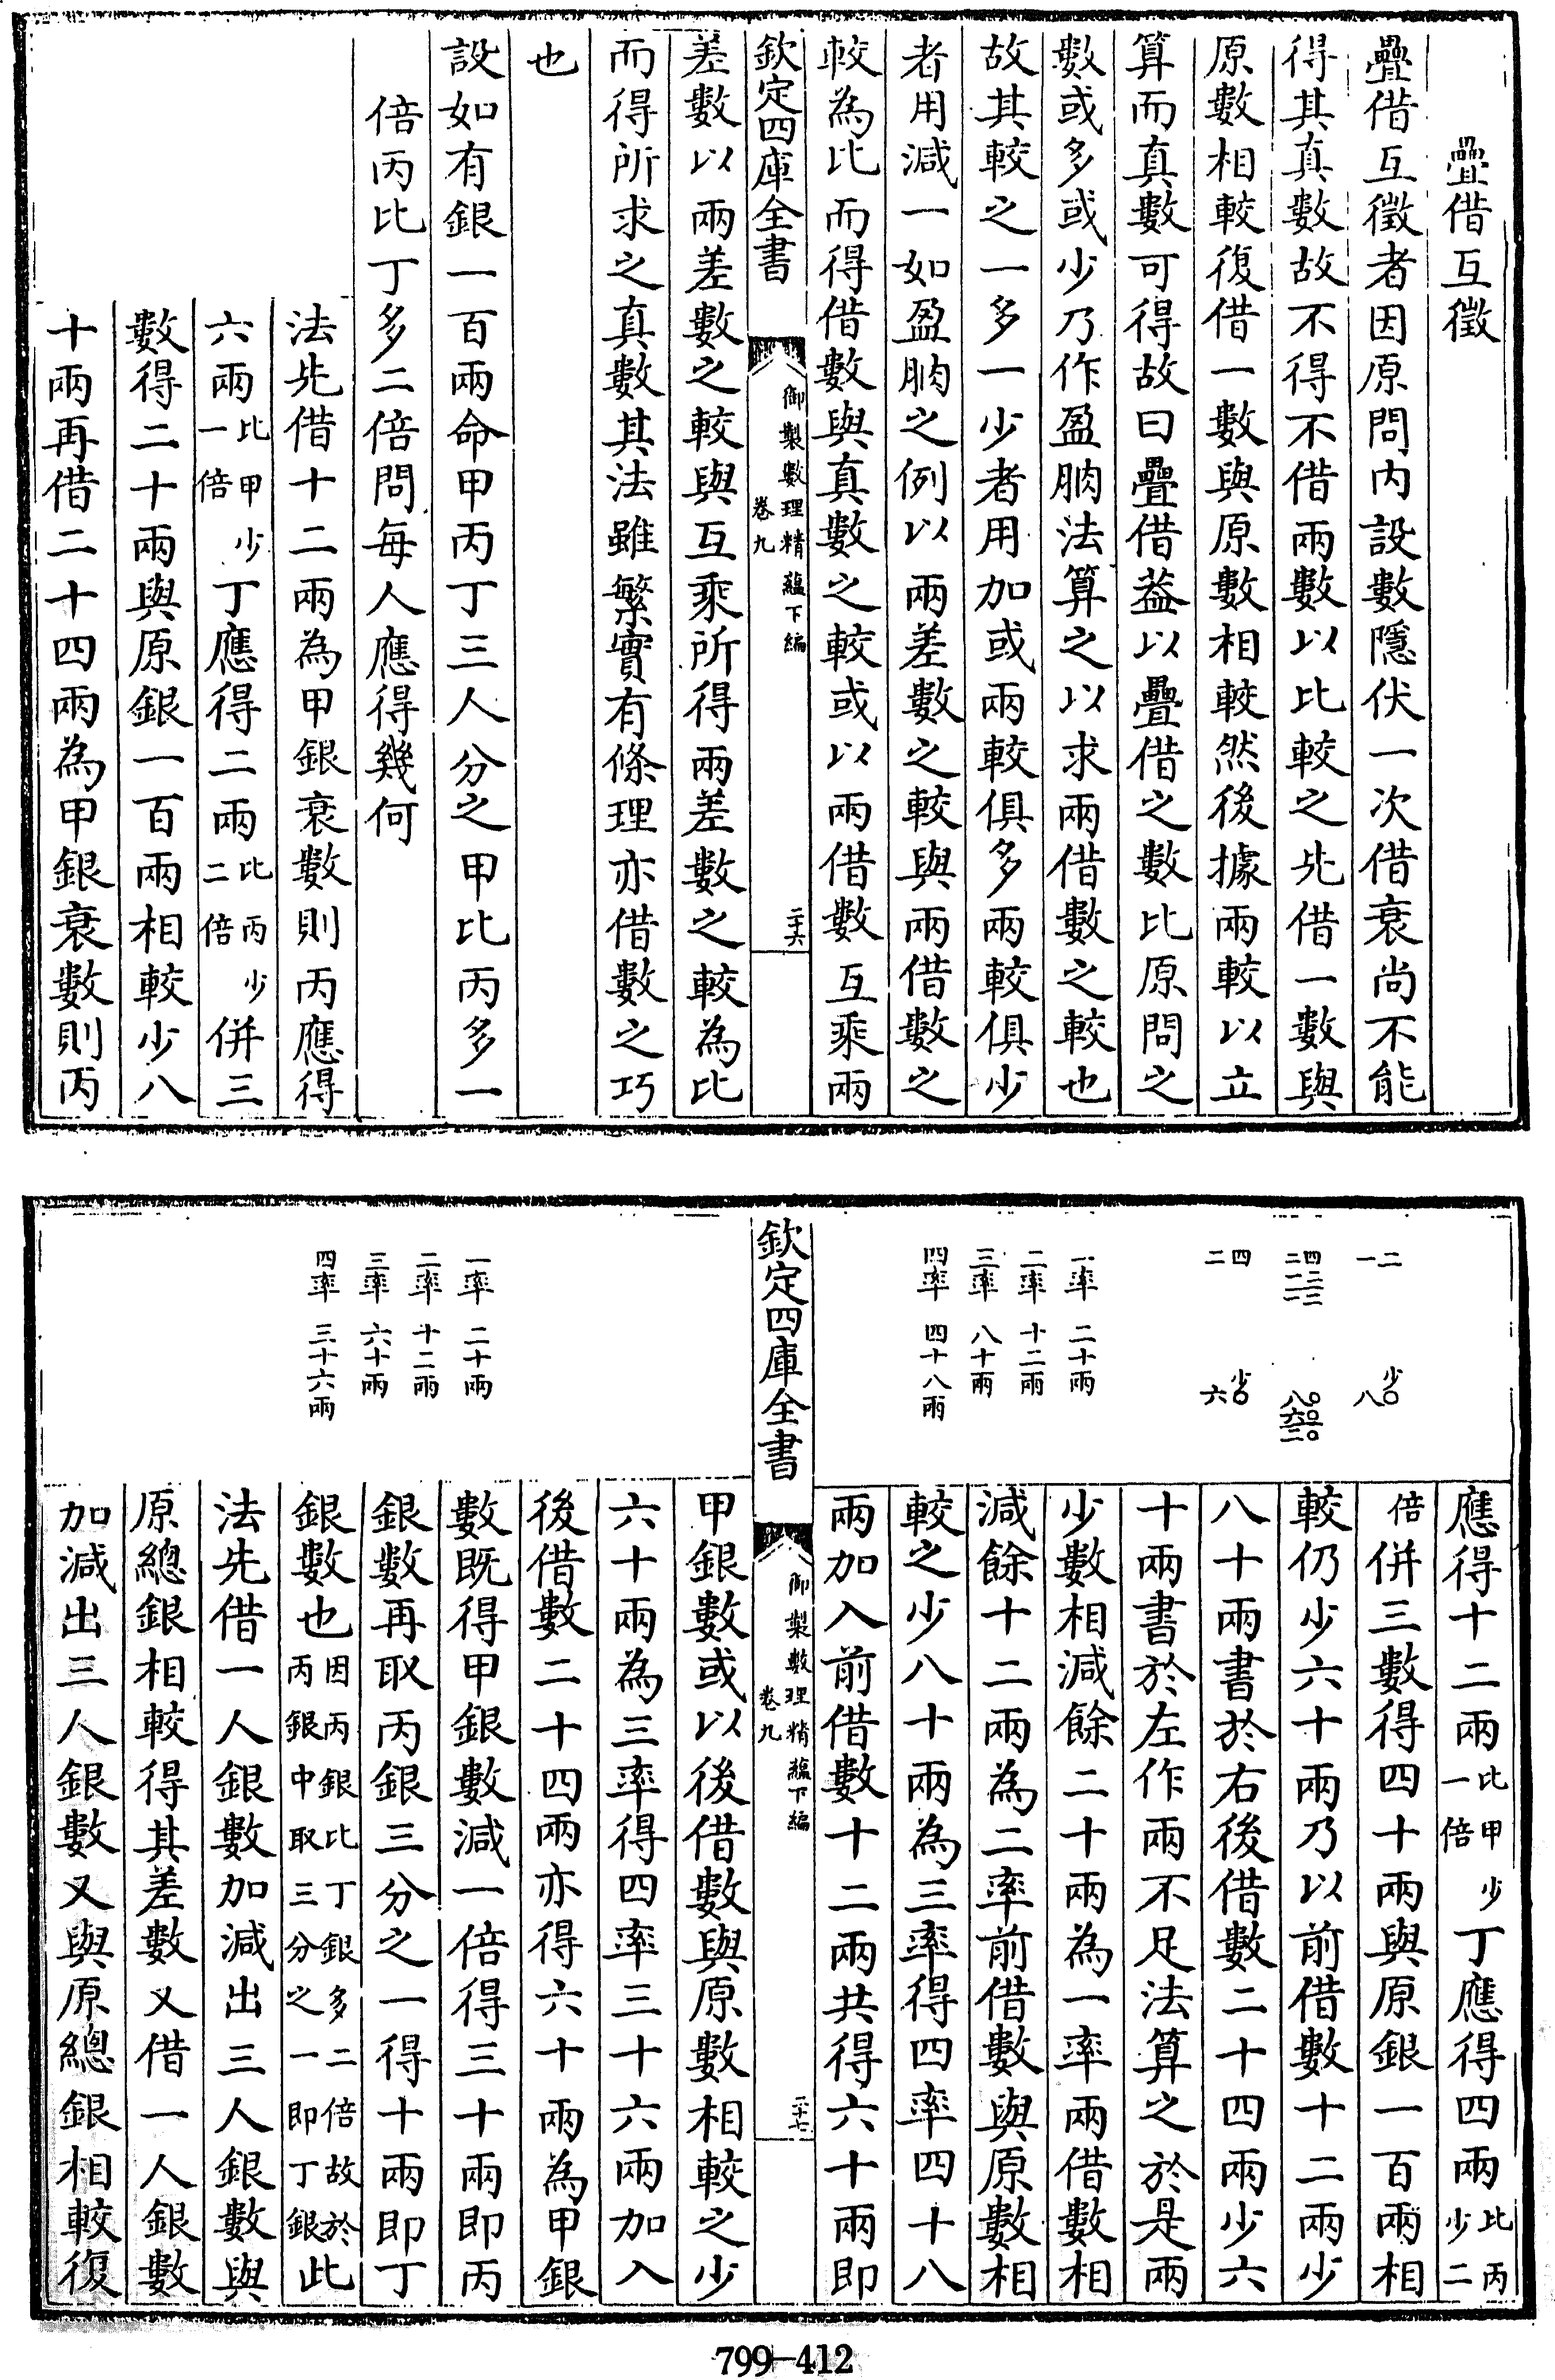 疊借互徵
疊借互徵者因原問内設數隱伏一次借衰尚不能
得其真數故不得不借兩數以比較之先借一數與
原數相較復借一數與原數相較然後據兩較以立
算而真數可得故曰疊借葢以疊借之數比原問之
數或多或少乃作盈朒法算之以求兩借數之較也
故其較之一多一少者用加或兩較俱多兩較俱少
者用減一如盈朒之例以兩差數之較與兩借數之
較為比而得借數與真數之較或以兩借數互乘兩
欽定四庫全書
御製數理精蘊下編
卷九
二十六
差數以兩差數之較與互乘所得兩差數之較為比
而得所求之真數其法雖繁實有條理亦借數之巧
也
設如有銀一百兩命甲丙丁三人分之甲比丙多一
倍丙比丁多二倍問每人應得幾何
法先借十二兩為甲銀衰數則丙應得
六兩比甲少一倍丁應得二兩比丙少二倍併三
數得二十兩與原銀一百兩相較少八
十兩再借二十四兩為甲銀衰數則丙
應得十二兩比甲少一倍丁應得四兩比丙少二
倍併三數得四十兩與原銀一百兩相
較仍少六十兩乃以前借數十二兩少
八十兩書於右後借數二十四兩少六
十兩書於左作兩不足法算之於是兩
少數相減餘二十兩為一率兩借數相
減餘十二兩為二率前借數與原數相
較之少八十兩為三率得四率四十八
兩加入前借數十二兩共得六十兩即
一率 二十兩
二率 十二兩
三率 八十兩
四率 四十八兩
欽定四庫全書
御製數理精蘊下編
卷九
二十七
甲銀數或以後借數與原數相較之少
六十兩為三率得四率三十六兩加入
後借數二十四兩亦得六十兩為甲銀
數既得甲銀數減一倍得三十兩即丙
銀數再取丙銀三分之一得十兩即丁
銀數也因丙銀比丁銀多二倍故於丙銀中取三分之一即丁銀此
法先借一人銀數加減出三人銀數與
原總銀相較得其差數又借一人銀數
加減出三人銀數又與原總銀相較復
一率 二十兩
二率 十二兩
三率 六十兩
四率 三十六兩
799-412